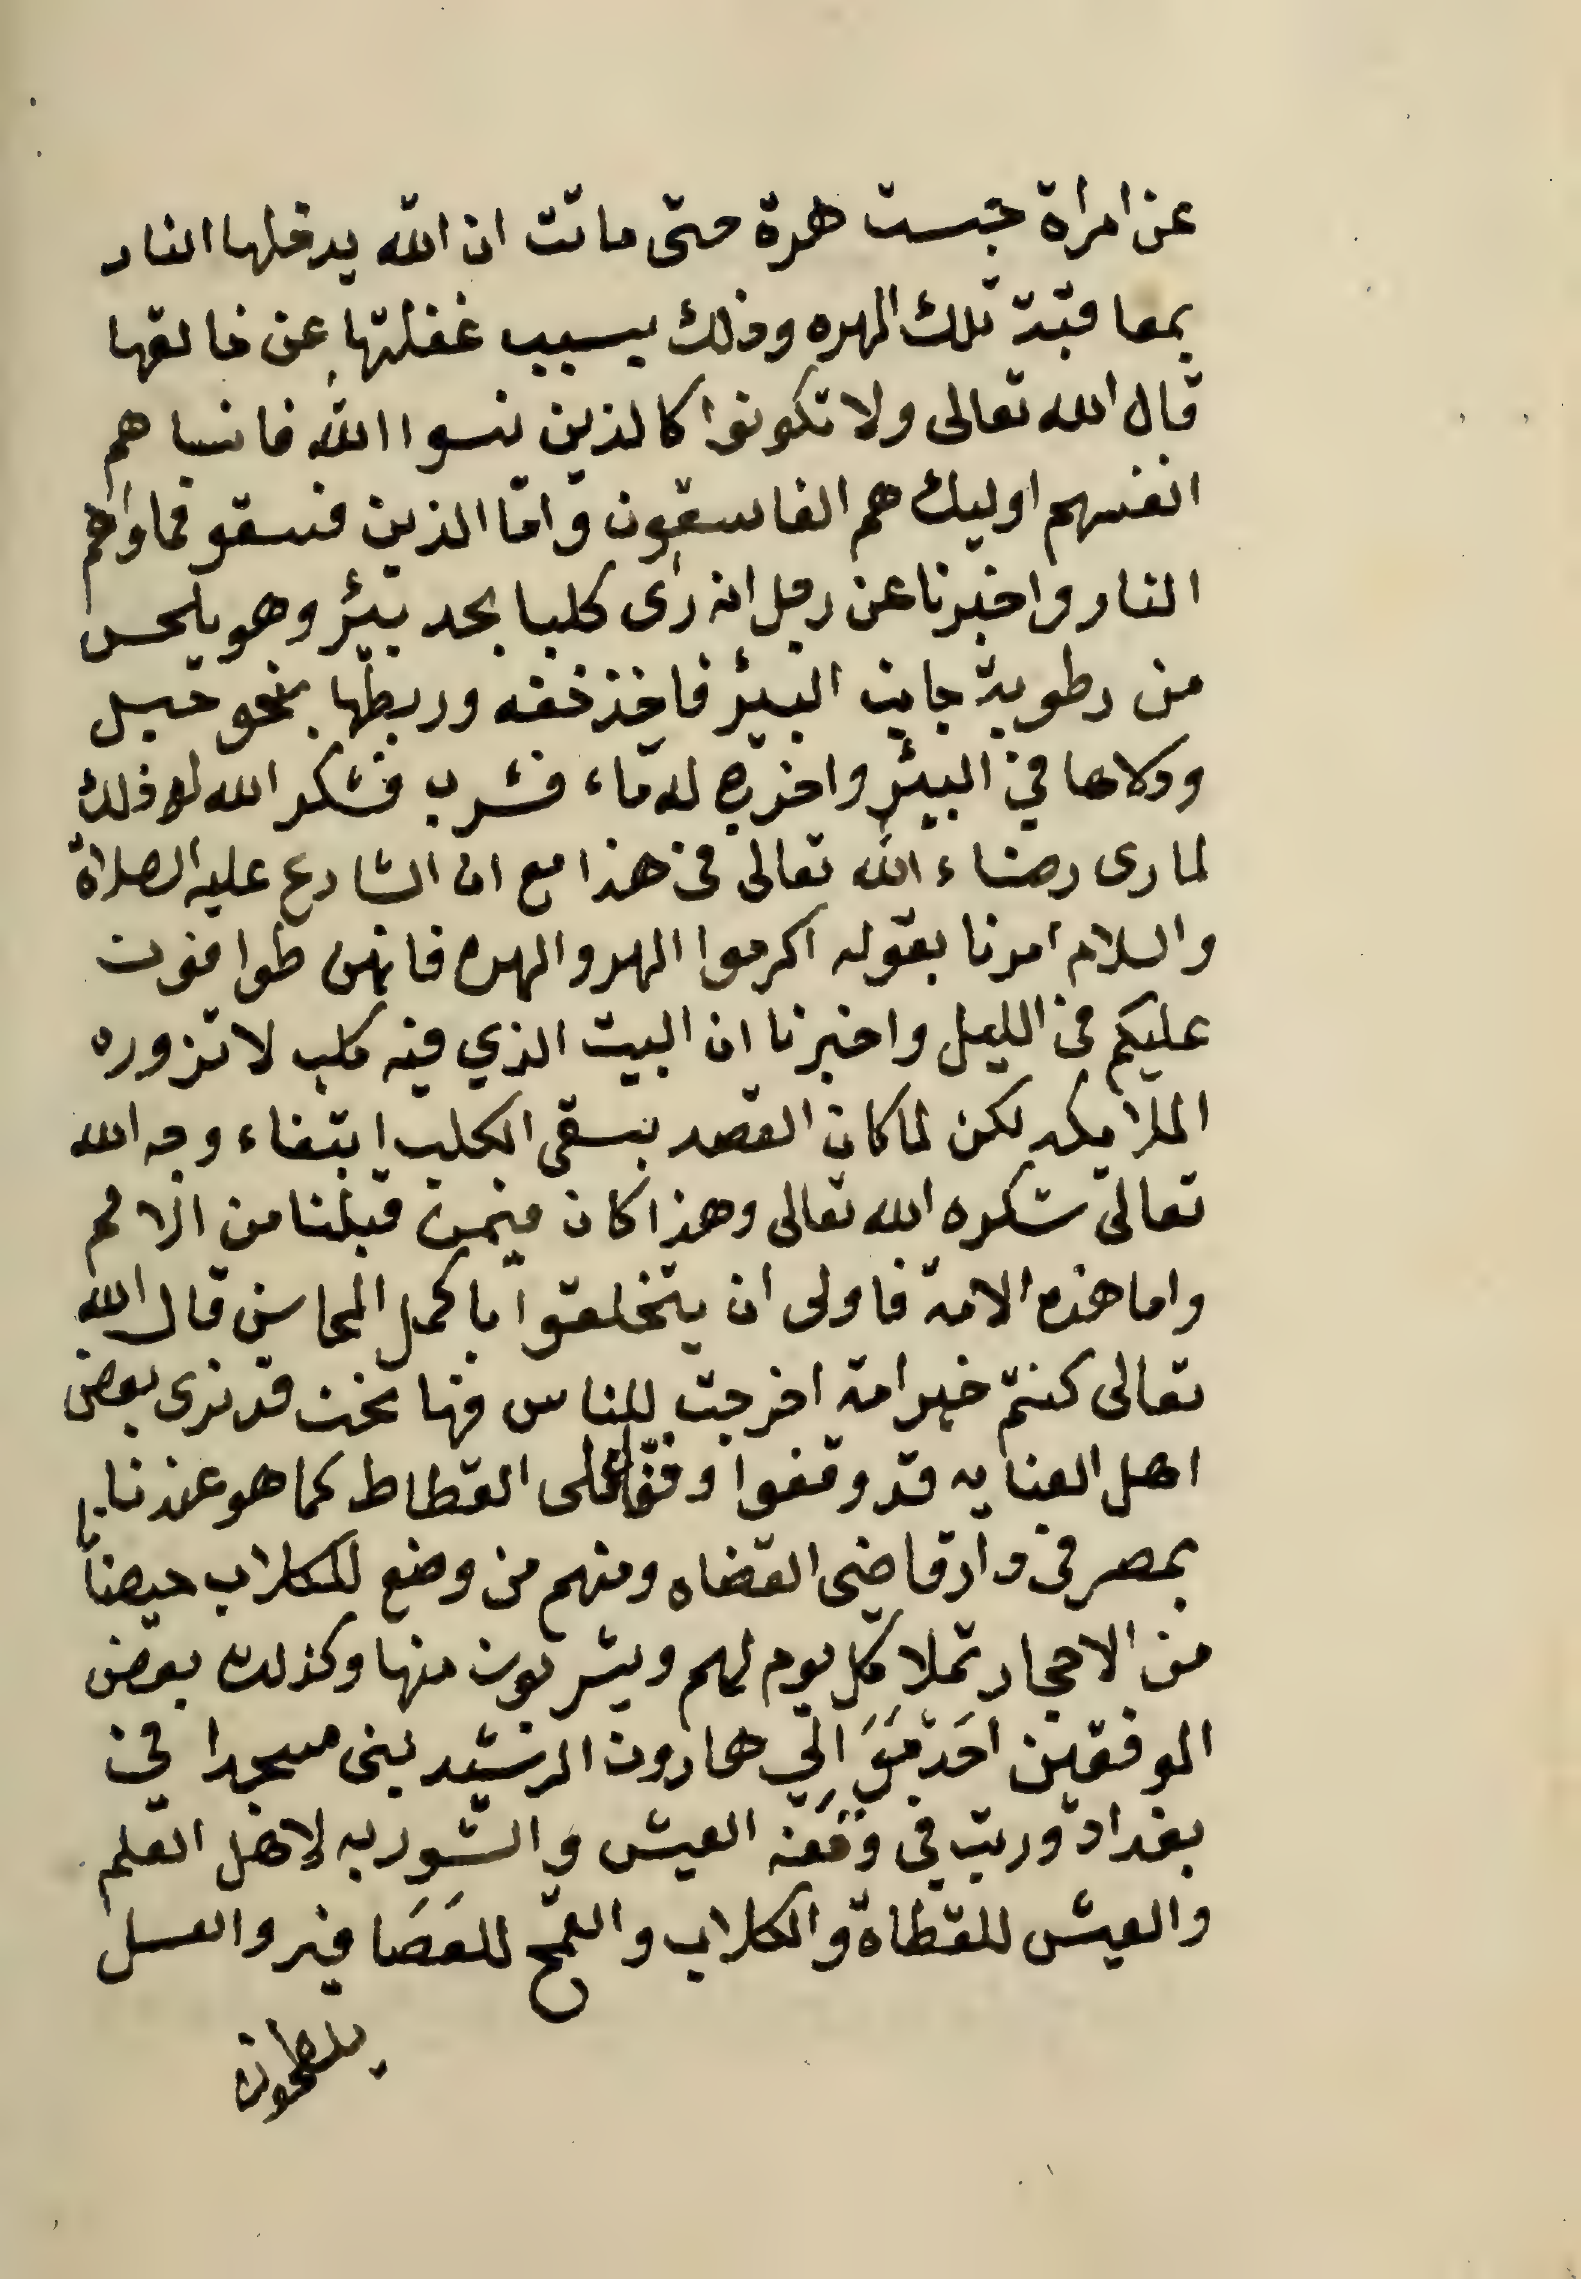 عن امراة حبست هرة حتى ماتت ان الله يدخلها النار
بمعاقبة تلك الهره وذلك بسبب غفلتها عن خالقها
قال الله تعالى ولا تكونوا كالذين نسوا الله فانساهم
انفسهم اوليك هم الفاسقون وامّا الذين فسقو فماواهم
النار واخبرنا عن رجل انه رأى كلبا بحد بيئر وهو يلحس
من رطوبة جانب البيئر فاخذ خفه وربطها بنحو حبل
ودلاها في البيئر واخرج له ماء فشرب فشكر الله له ذلك
لما رى رضاء الله تعالى في هذا مع ان الشارع عليه الصلاة
والسلام امرنا بقوله اكرموا الهر والهره فانهن طوافون
عليكم في الليل واخبرنا ان البيت الذي فيه كلب لا تزوره
الملايكه لكن لما كان القصد بسقى الكلب ابتغاء وجه الله
تعالى شكره الله تعالى وهذا كان فيمن قبلنا من الامم
واما هذه الامة فاولى ان يتخلقوا باكمل المحاسن قال الله
تعالى كنتم خير امة اخرجت للناس فها نحن قد نرى بعض
اهل العنايه قد وقفوا وقفا على القطاط كما هو عندنا
بمصر في دار قاضى القضاه ومنهم من وضع للكلاب حيضاناً
من الاحجار تملا كل يوم لهم ويشربون منها وكذلك بعض
الموفقين اَحَد الي هارون الرشيد بنى مسجدا في
بغداد ورتب في وَقفِه العيش والشوربه لاهل العلم
والعيش للقطاة والكلاب والقمح للعَصَافير والعسل